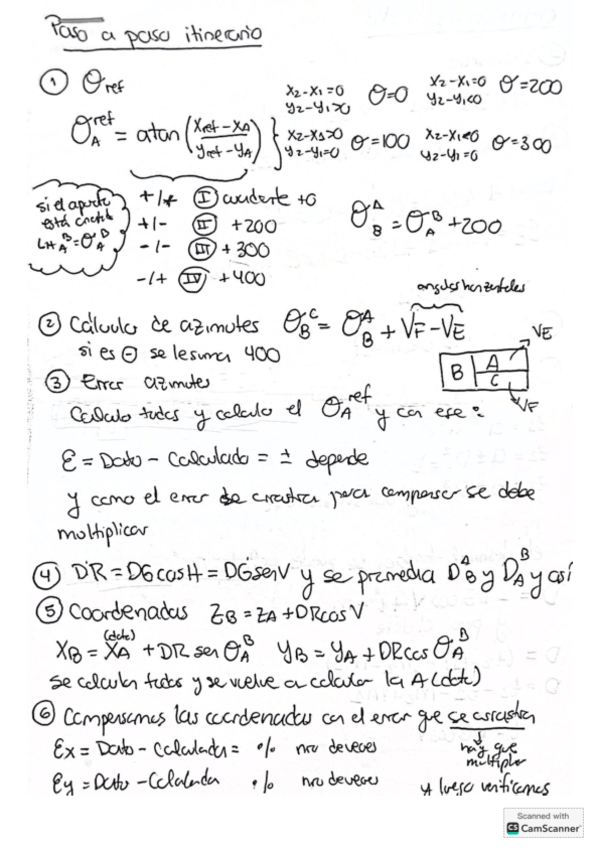 Paso a paso itinerario
① θref
X2-X1=0 y2-y1>0 θ=0
X2-X1=0 y2-y1<0 θ=200
θ_A^ref = atan (Xref-XA / yref-yA)
X2-X1>0 y2-y1=0 θ=100
X2-X1<0 y2-y1=0 θ=300
si el aparato está orientado LH_A^B=θ_A^B
+/+ Ⓘ cuadrante +0
+/- Ⓘ Ⓘ +200
-/- Ⓘ Ⓘ Ⓘ +300
-/+ ⒾⓋ +400
θ_B^A = θ_A^B +200
angulos horizontales
② Cálculo de azimutes θ_B^C = θ_B^A + VF - VE
si es ⊖ se le suma 400
B A C VE VF
③ Error azimutes
Calculo todos y calculo el θ_A^ref y con ese:
ε = Dato - Calculado = ± depende
y como el error se arrastra para compensar se debe
multiplicar
④ DR = DG cos H = DG sen V y se promedia D_B^A y D_A^B y así
⑤ Coordenadas ZB = ZA + DR cos V
XB = XA (dato) + DR sen θ_A^B yB = yA + DR cos θ_A^B
se calculan todos y se vuelve a calcular la A (dato)
⑥ Compensamos las coordenadas con el error que se arrastra
Ex = Dato - Calculada = % nro de veces
hay que multiplicar
Ey = Dato - Calculada % nro de veces
y luego verificamos
Scanned with
CS CamScanner